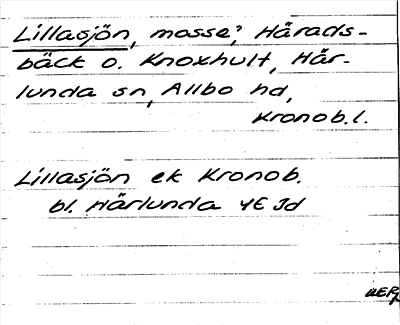 Lillasjön, mosse; Härads-
bäck o. Knoxhult, Här-
lunda sn, Allbo hd,
Kronob.l.
Lillasjön ek Kronob.
bl. Härlunda 4E Jd